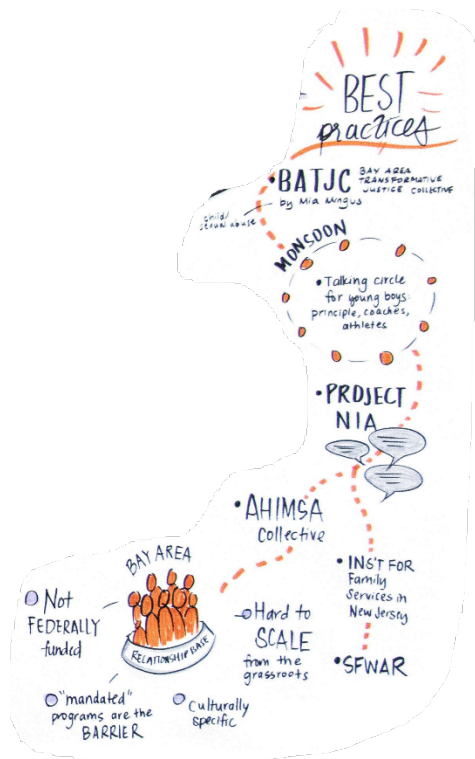 BEST
practices
• BATJC
BAY AREA
TRANSFORMATIVE
JUSTICE COLLECTIVE
by Mia Mingus
child/
sexual abuse
MONSOON
• Talking circle
for young boys:
principle, coaches,
athletes
• PROJECT
NIA
• AHIMSA
Collective
• INS'T FOR
Family
Services in
New Jersey
• SFWAR
BAY AREA
RELATIONSHIP BASE
Not
FEDERALLY
funded
"mandated"
programs are the
BARRIER
Culturally
specific
Hard to
SCALE
from the
grassroots